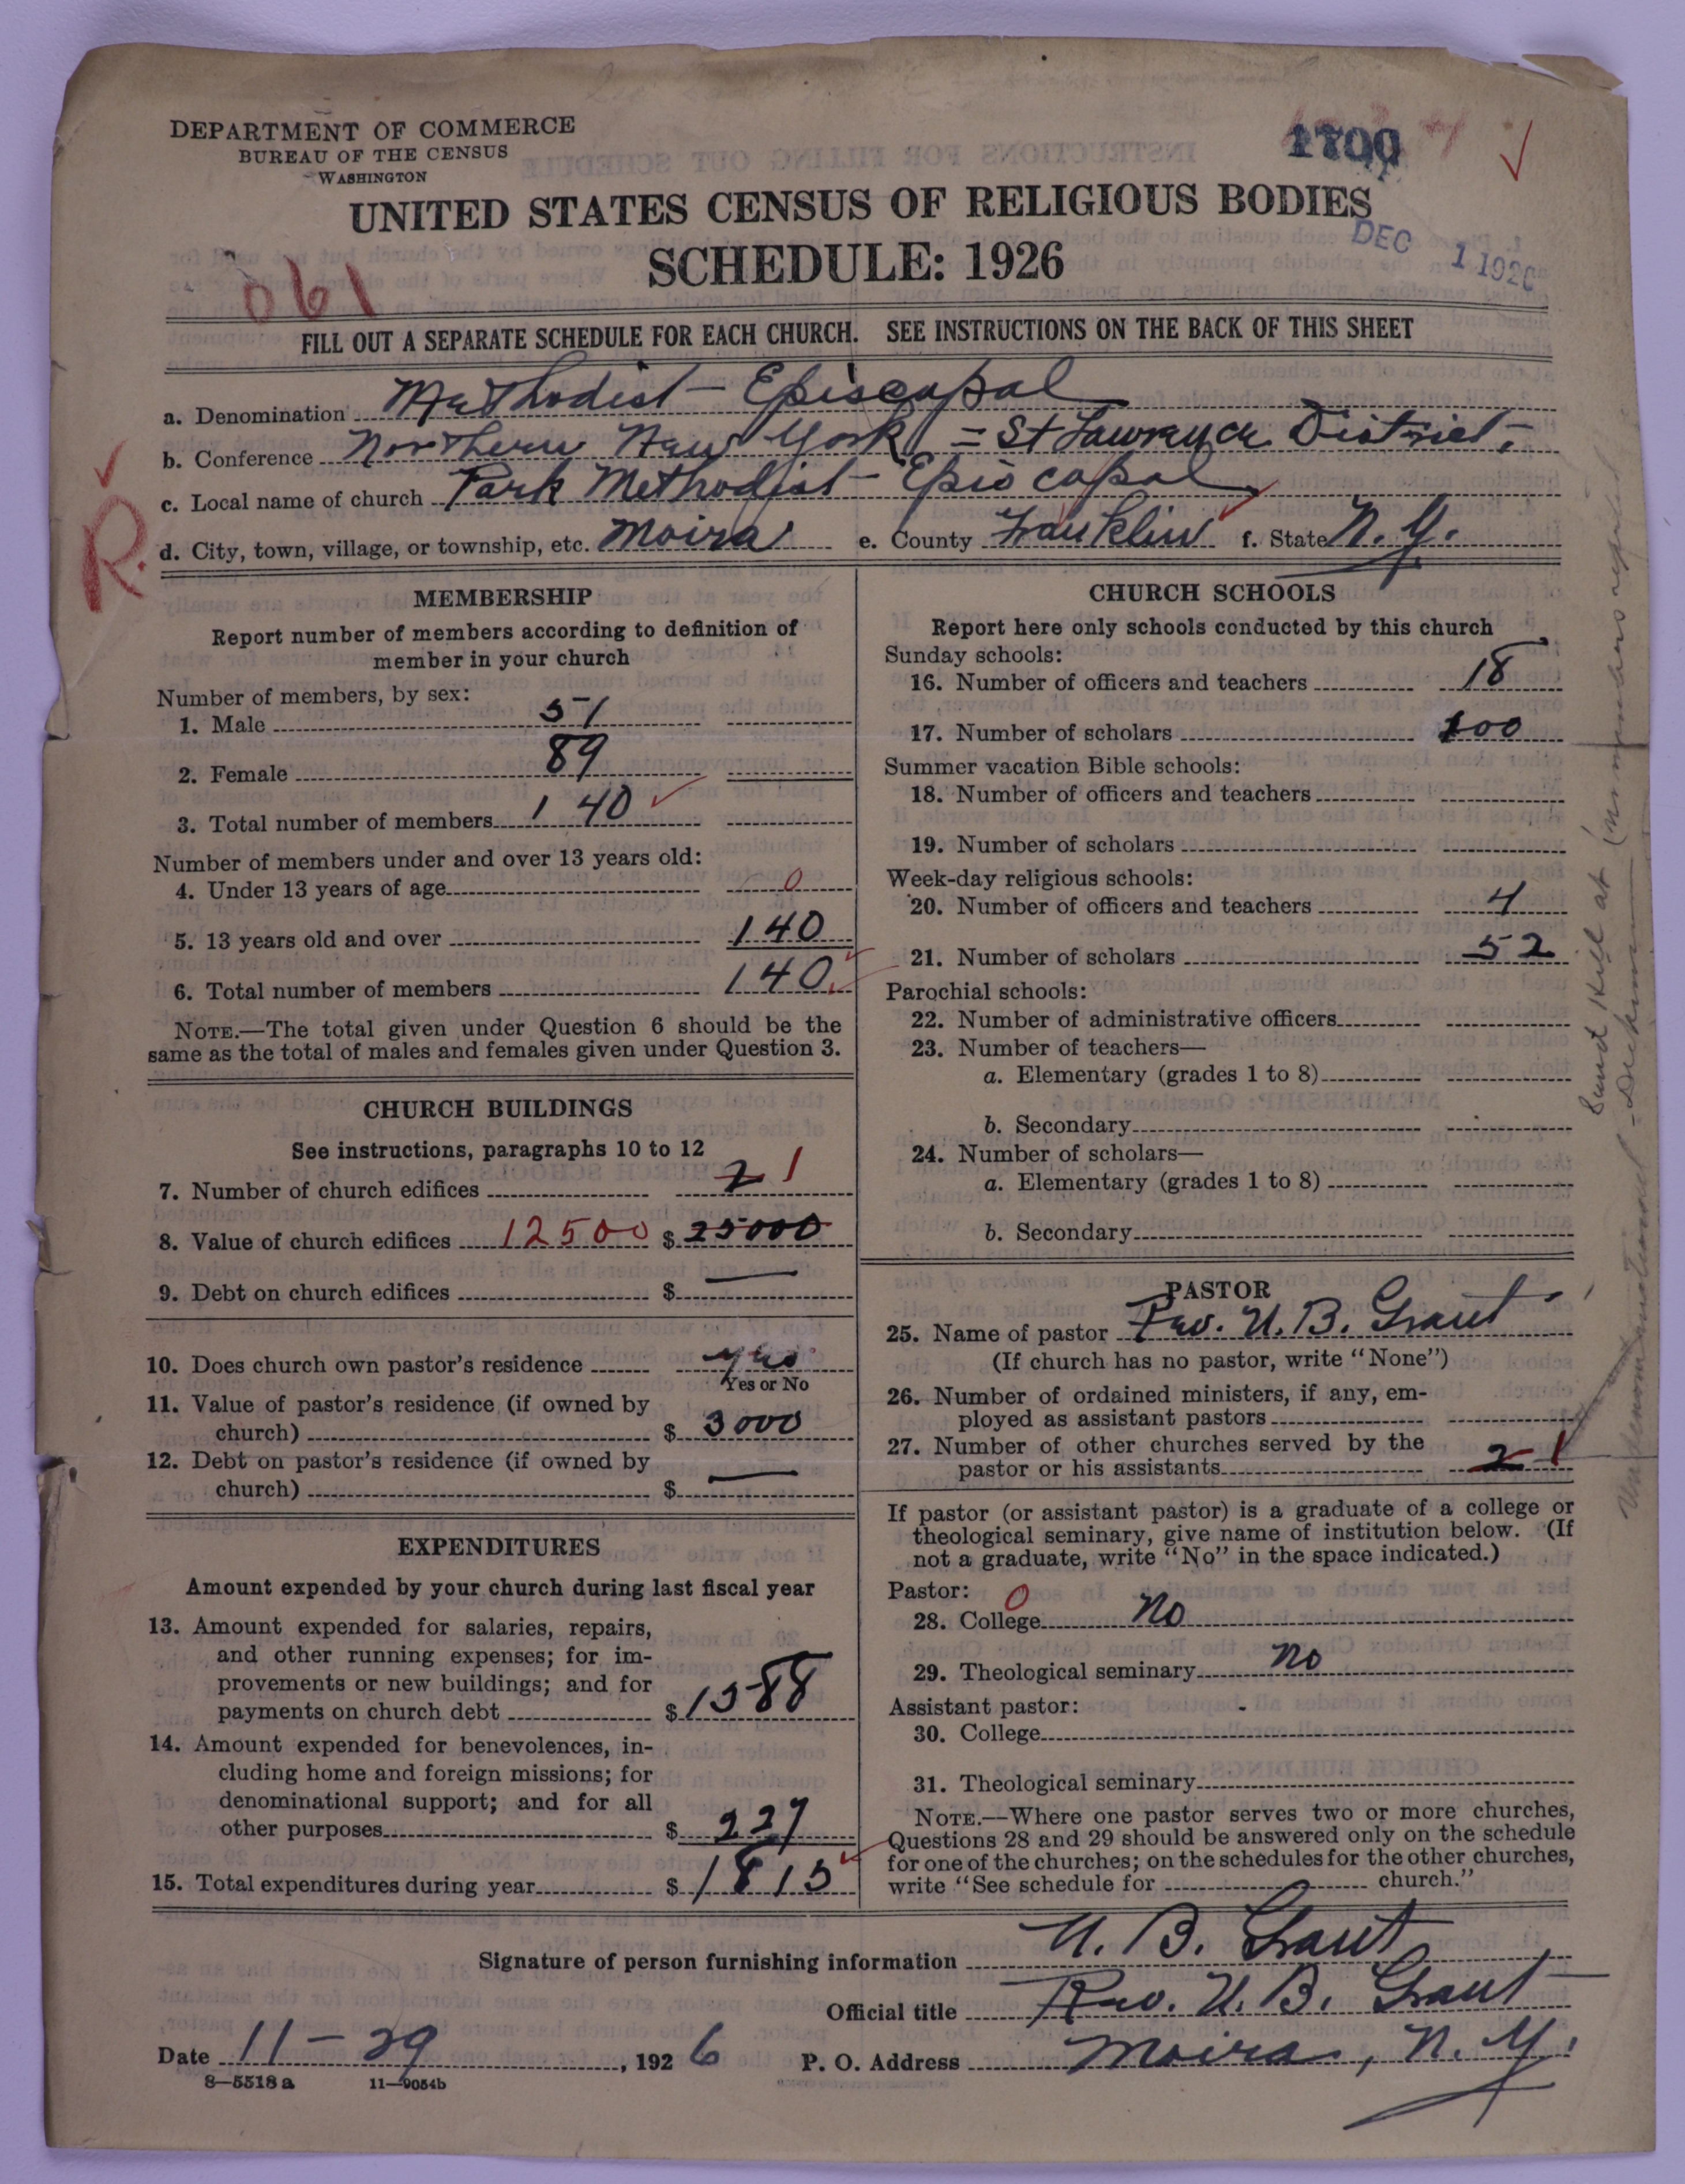 DEPARTMENT OF COMMERCE
BUREAU OF THE CENSUS
WASHINGTON
1700
UNITED STATES CENSUS OF RELIGIOUS BODIES
SCHEDULE: 1926
DEC 1 1926
061
FILL OUT A SEPARATE SCHEDULE FOR EACH CHURCH. SEE INSTRUCTIONS ON THE BACK OF THIS SHEET
a. Denomination Methodist Episcopal
b. Conference Northern New York = St Lawrence District.
c. Local name of church Park Methodist Episcopal
d. City, town, village, or township, etc. Moira e. County Franklin f. State N. Y.
R.
MEMBERSHIP
Report number of members according to definition of
member in your church
Number of members, by sex:
1. Male 51
2. Female 89
3. Total number of members 140
Number of members under and over 13 years old:
4. Under 13 years of age 0
5. 13 years old and over 140
6. Total number of members 140
NOTE.—The total given under Question 6 should be the
same as the total of males and females given under Question 3.
CHURCH BUILDINGS
See instructions, paragraphs 10 to 12
7. Number of church edifices 2 1
8. Value of church edifices 12500 $ 25000
9. Debt on church edifices $ —
10. Does church own pastor's residence yes
Yes or No
11. Value of pastor's residence (if owned by
church) $ 3000
12. Debt on pastor's residence (if owned by
church) $ —
EXPENDITURES
Amount expended by your church during last fiscal year
13. Amount expended for salaries, repairs,
and other running expenses; for im-
provements or new buildings; and for
payments on church debt $ 1588
14. Amount expended for benevolences, in-
cluding home and foreign missions; for
denominational support; and for all
other purposes $ 227
15. Total expenditures during year $ 1815
CHURCH SCHOOLS
Report here only schools conducted by this church
Sunday schools:
16. Number of officers and teachers 18
17. Number of scholars 100
Summer vacation Bible schools:
18. Number of officers and teachers
19. Number of scholars
Week-day religious schools:
20. Number of officers and teachers 4
21. Number of scholars 52
Parochial schools:
22. Number of administrative officers
23. Number of teachers—
a. Elementary (grades 1 to 8)
b. Secondary
24. Number of scholars—
a. Elementary (grades 1 to 8)
b. Secondary
PASTOR
25. Name of pastor Rev. U. B. Grant
(If church has no pastor, write "None")
26. Number of ordained ministers, if any, em-
ployed as assistant pastors
27. Number of other churches served by the
pastor or his assistants 2 1
If pastor (or assistant pastor) is a graduate of a college or
theological seminary, give name of institution below. (If
not a graduate, write "No" in the space indicated.)
Pastor: 0
28. College No
29. Theological seminary No
Assistant pastor:
30. College
31. Theological seminary
NOTE.—Where one pastor serves two or more churches,
Questions 28 and 29 should be answered only on the schedule
for one of the churches; on the schedules for the other churches,
write "See schedule for church."
Signature of person furnishing information U. B. Grant
Official title Rev. U. B. Grant
Date 11-29, 1926 P. O. Address Moira, N. Y.
8—5518 a 11—9054b